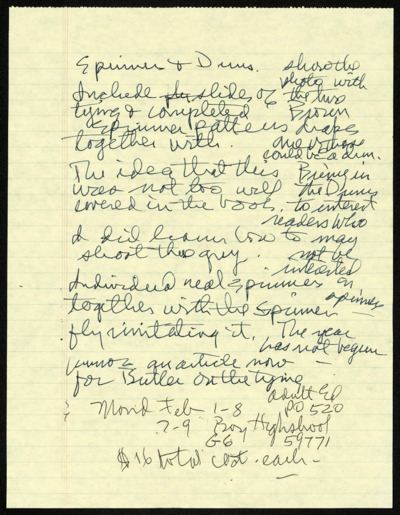 Spinner & Duns.
show the
photo with
Include slides of the two
tying & completed Brown
Spinner patterns drapes
together with. one of these
could be a dun.
The idea that this Bring in
was not too well the Duns
covered in the book. to interest
readers who
I did learn how to may
shoot this grey. not be
interested
Individual real spinners in
together with the spinner spinners
fly imitating it. The year
has not begun
an article now —
for Butler on the tying
adult Ed
Mond Feb 1-8 PO 520
7-9 Boz Highshool
G6 59771
$16 total cost. each —